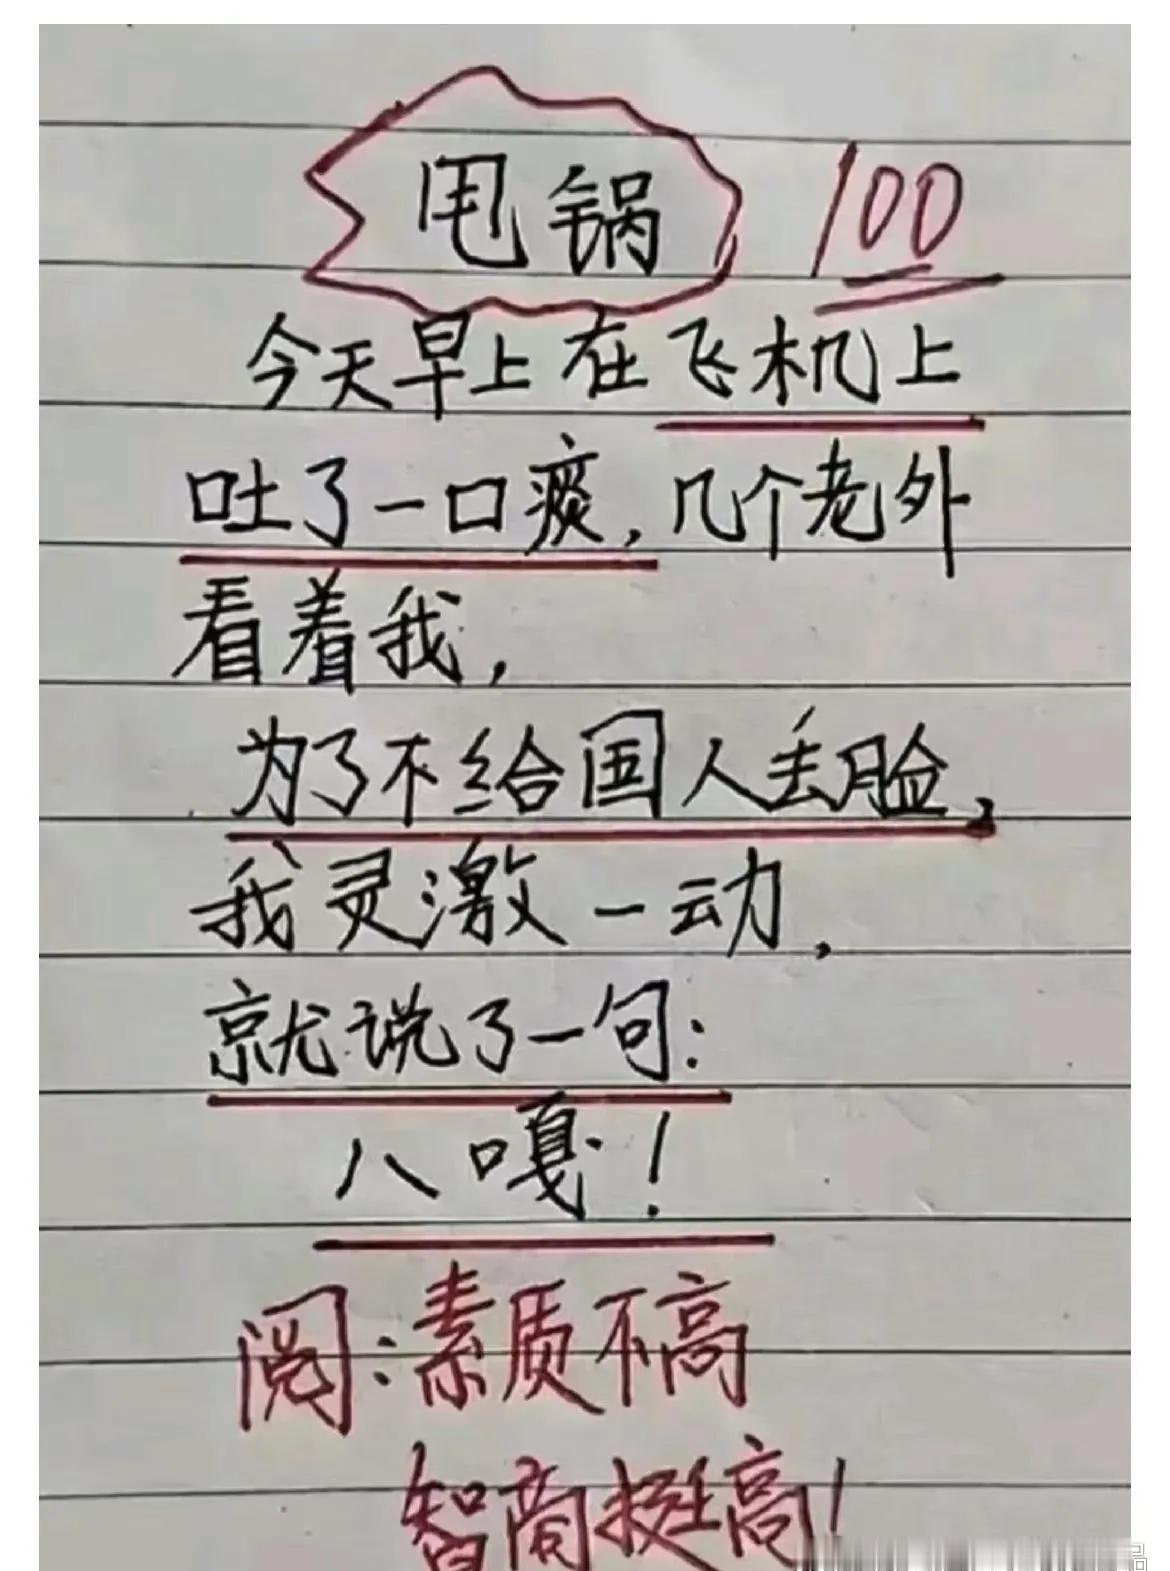 甩锅 100
今天早上在飞机上
吐了一口痰,几个老外
看着我,
为了不给国人丢脸,
我灵激一动,
就说了一句:
八嘎!
阅:素质不高
智商挺高!